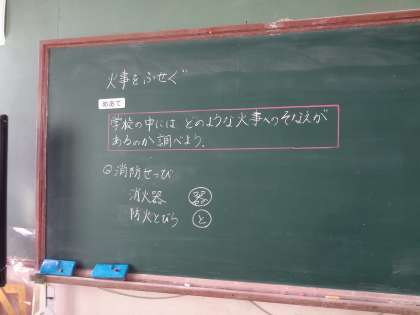 火事をふせぐ
めあて
学校の中には どのような火事へのそなえが
あるのか 調べよう。
◎消防せつび
消火器 器
防火とびら と